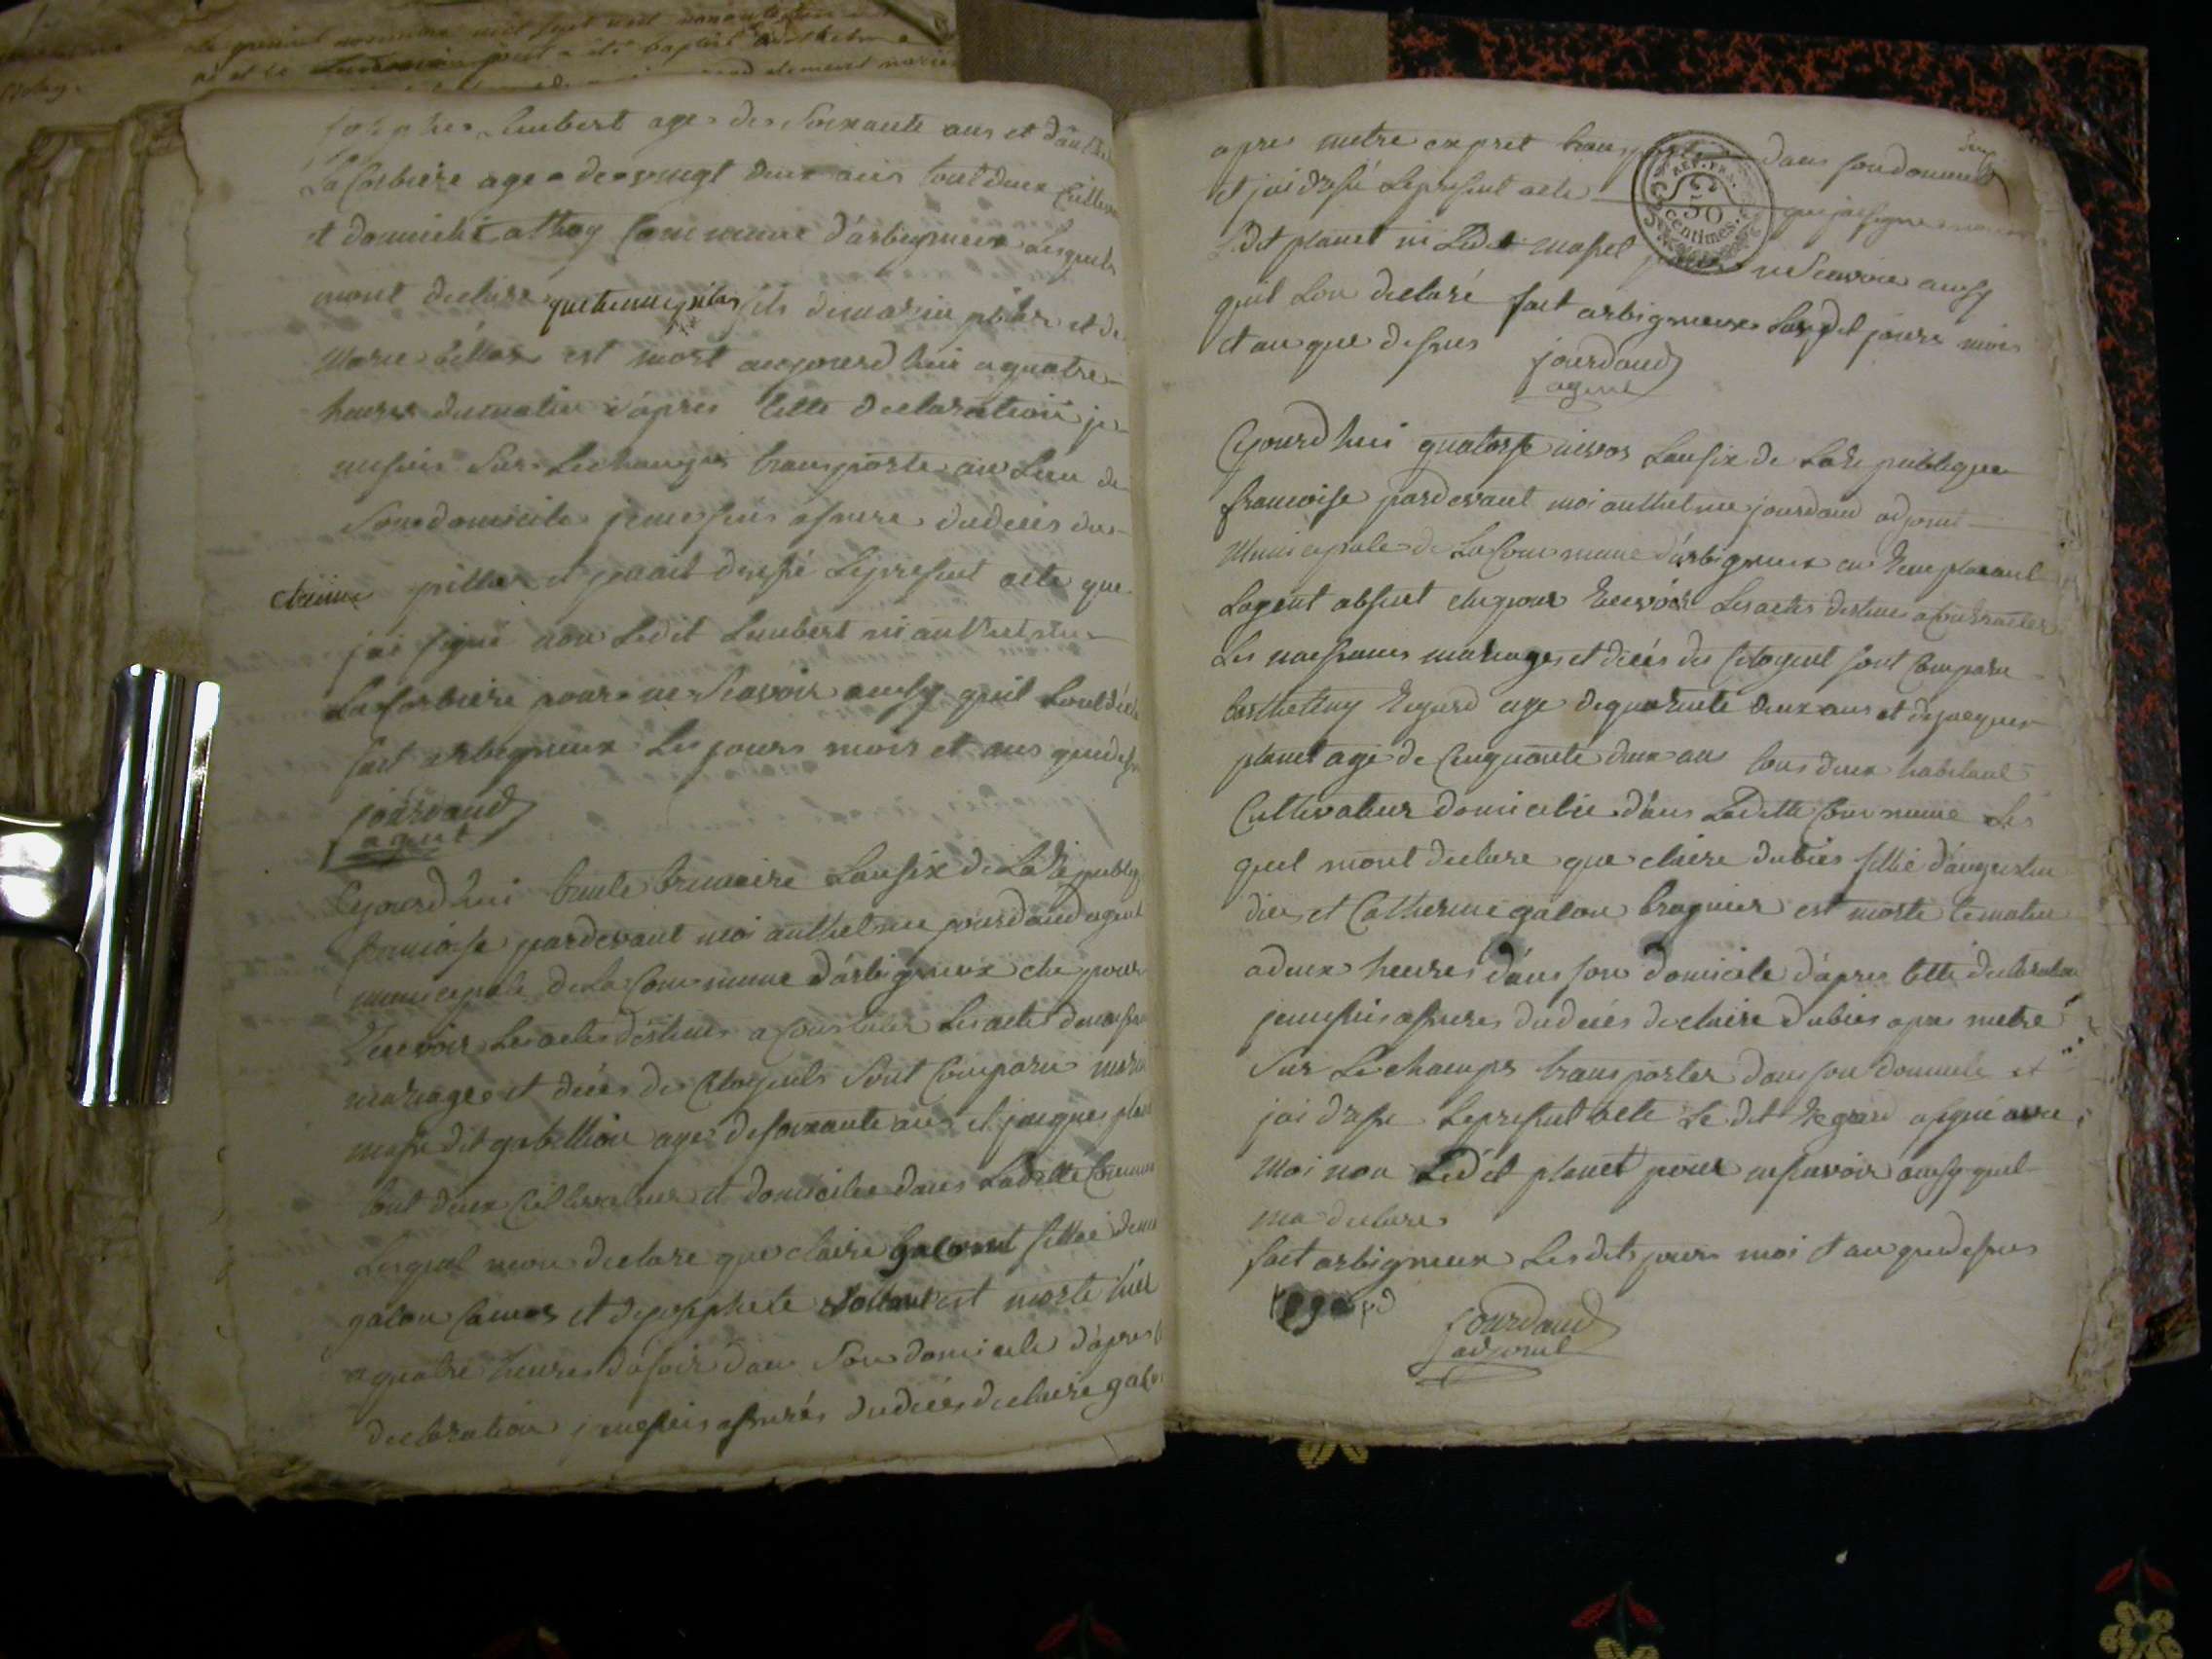 Lumbert age de Soixante ans et
La Corbiere age de vingt deux ans tout deux
et domicilié athoy Commune d'arbignieux Lesquels
mont declare que fils de pillar et de
Marie est mort aujourd hui a quatre
heures du matin d'apres cette declaration je
me suis Sur Lechamps transporte au Lieu de
Son domicile je me suis assure dudeces de
etienne pillar et jai dressé Lepresent acte que
jai signé non Ledit Lumbert ni
La Corbiere pour ne Scavoir ainsy quil
fait arbignieux Les jours mois et ans
jourdand
agent
Cejourdhui trente brumaire Lansix de La
francoise pardevant moi anthelme jourdand agent
municipale de La Commune d'arbignieux elu pour
Recevoir Les actes destines a Constater Les actes
mariages et deces des Citoyents Sont Comparu
dit gabillion age de soixante ans et jacques
tout deux Cultivateur et domicilie dans Laditte
Lesquel mon declare que claire galon fille
galon et de josephete est morte hier
a quatre heures dusoir dans Son domicile d'apres
declaration je me suis assurés dudeces de claire
apres metre expret dans son domicile
et jai dressé Lepresent acte que jai signe
Ledit planet ni Ledit massel ne Scavoir ainsy
quil Lon declaré fait arbignieux Lesdit jours mois
et an que dessus jourdand
agent
Cejourdhui quatorse nivos Lansix de La Republique
francoise pardevant moi anthelme jourdand adjoint
Municipale de La Commune d'arbignieux en Remplacant
Lagent absent elu pour Recevoir Les actes destines a Constater
Les naissances mariages et deces des Citoyent sont Comparu
Regard age de quarante deux ans et de jacques
planet age de Cinquante deux ans tous deux habitant
Cultivateur domicilie dans Laditte Commune Les
quel mont declare que claire dubies fille d'augustin
et Catherine galon est morte Cematin
adeux heures dans son domicile d'apres cette declaration
jemesuis assures dudeces de claire dubies apres metre
Sur Lechamps transporter dans son domicile et
jai dresse Lepresent acte Le dit Regard asigné avec
Moi non Ledit planet pour nesavoir ainsy quil
ma declare
fait arbignieux Lesdits jours moi et an quedessus
regard jourdand
adjoint
50
centimes.